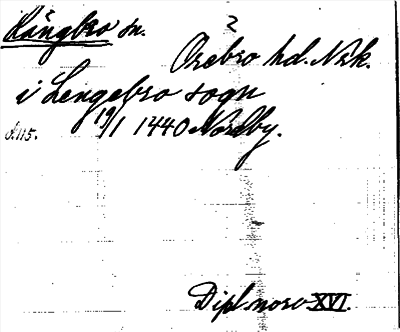 Långbro sn.
2
Örebro hd. Nrk.
i Lengebro sogn
s. 115. 19/1 1440 Nordby.
Dipl norv XVI.